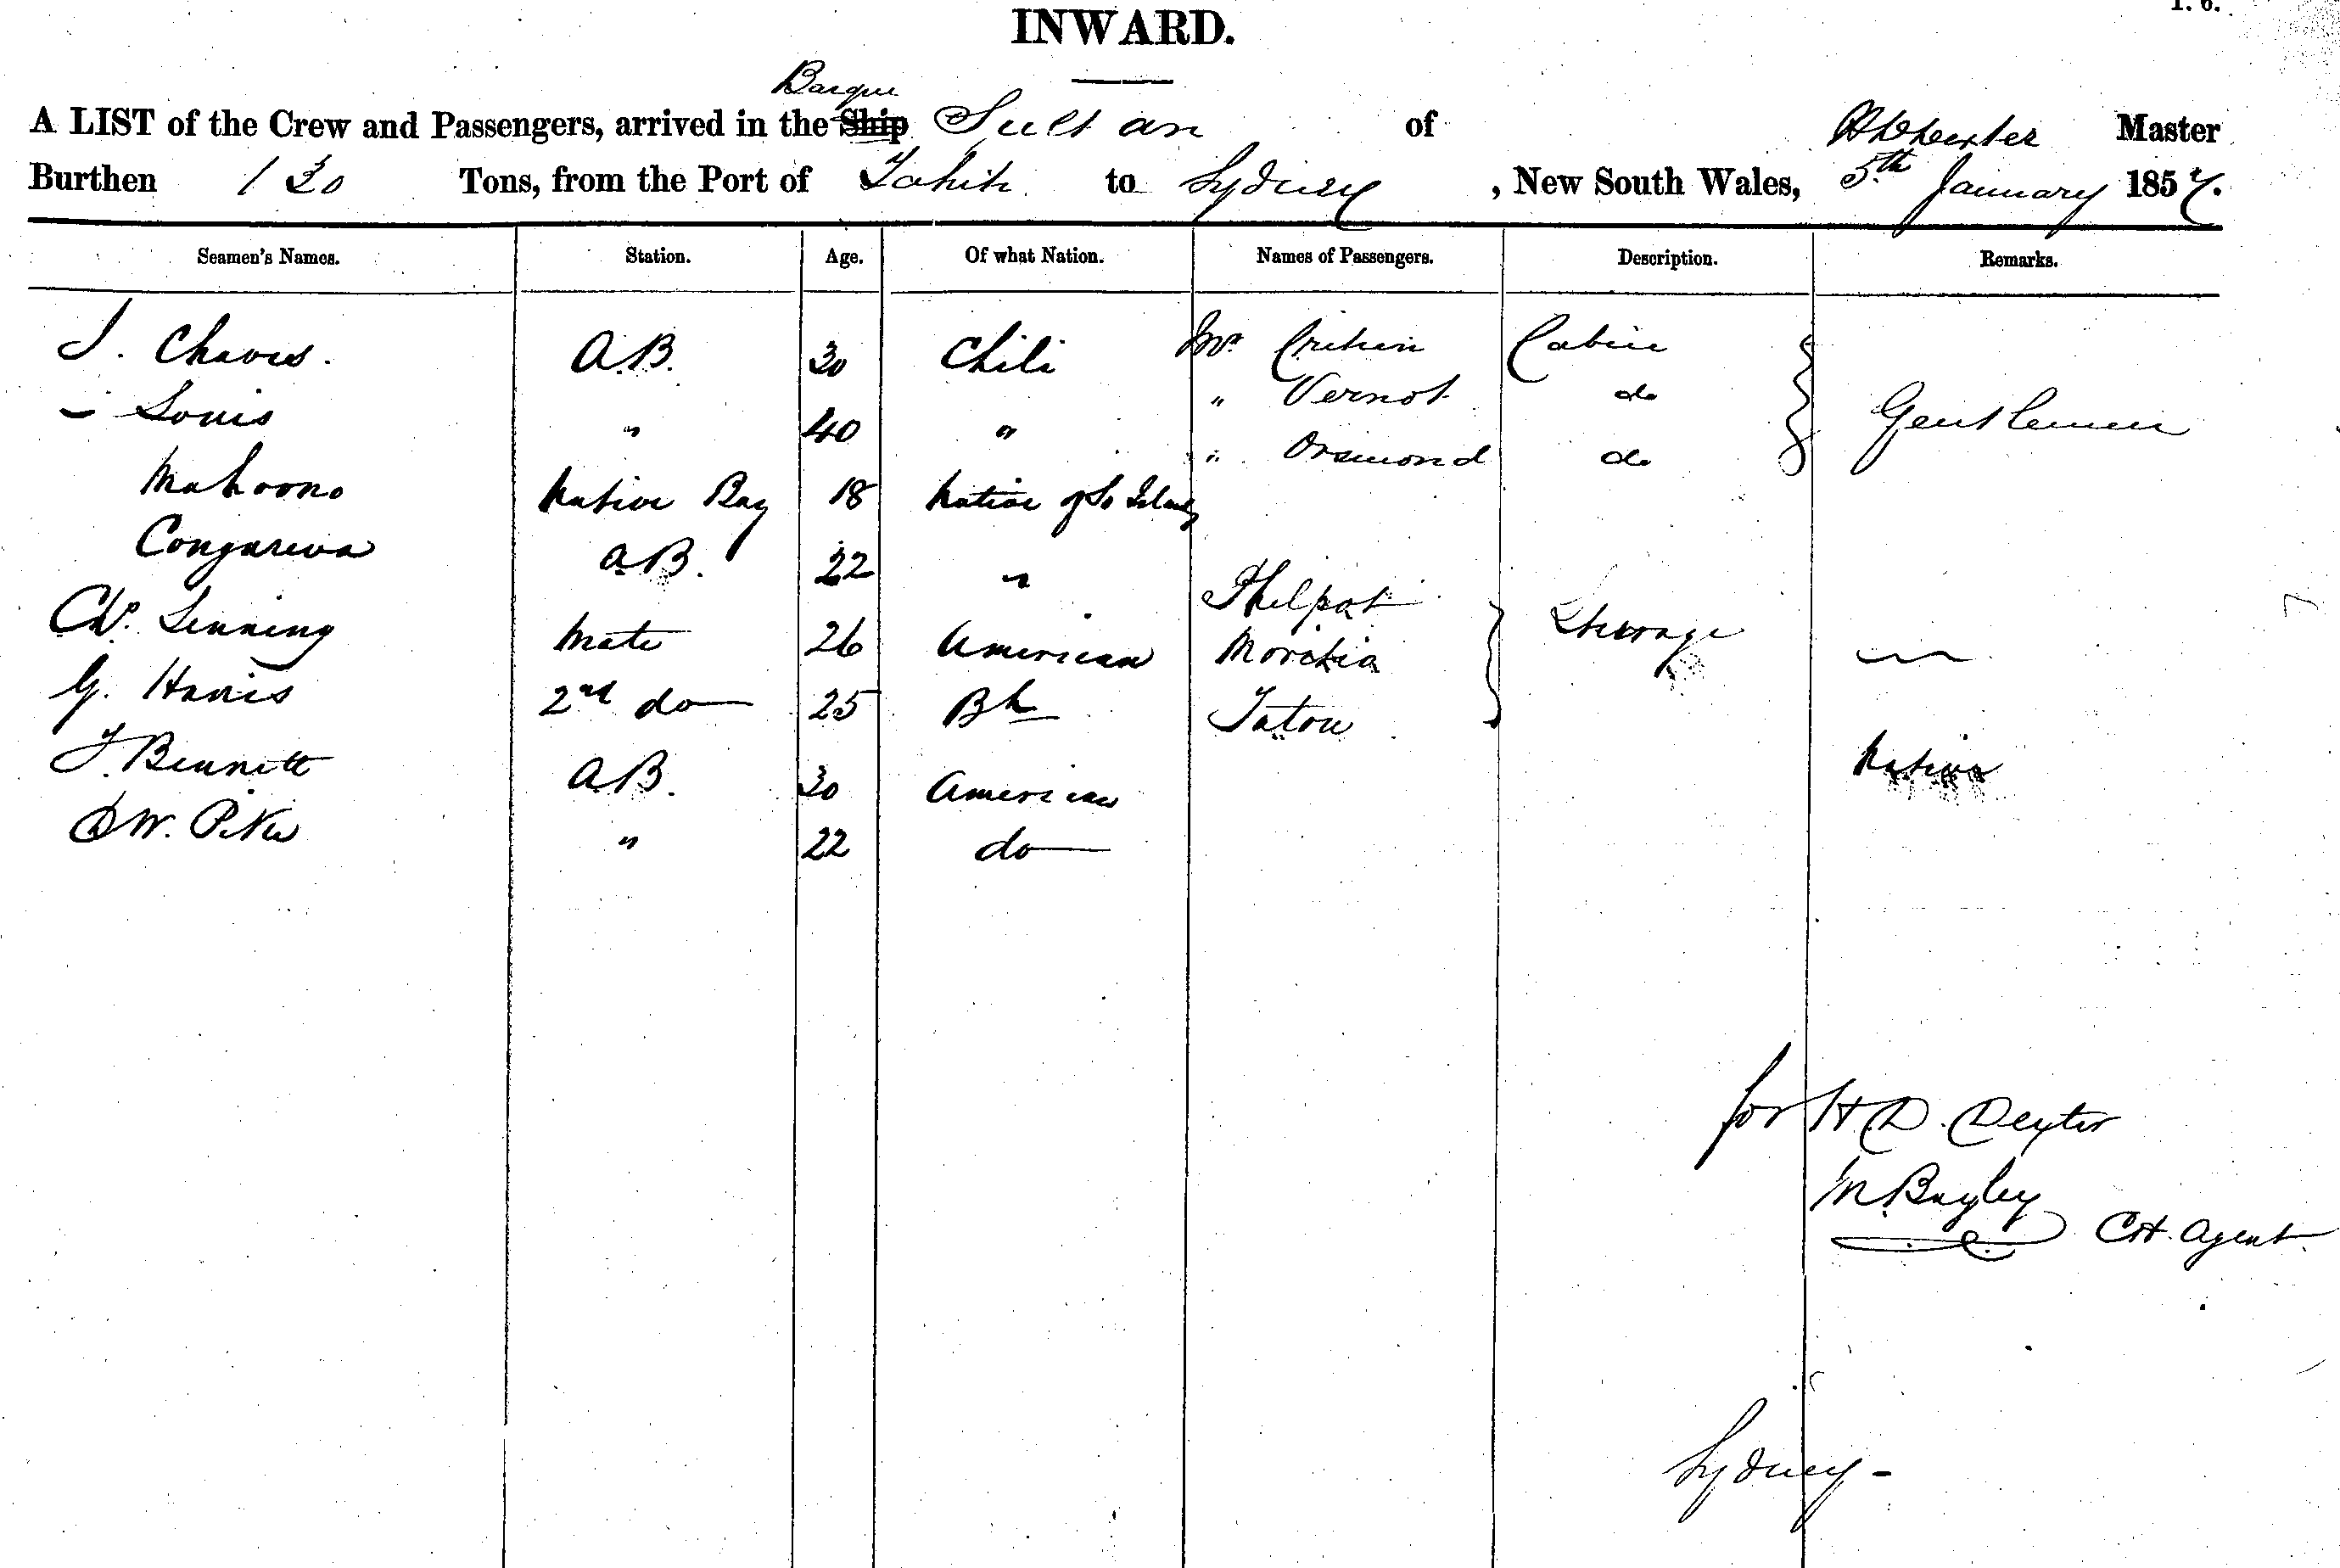 I. 6.
INWARD.
Barque
A LIST of the Crew and Passengers, arrived in the Ship Sultan of H D Dexter Master
Burthen 130 Tons, from the Port of Tahiti to Sydney, New South Wales, 5th January 1857.
Seamen's Names. Station. Age. Of what Nation. Names of Passengers. Description. Remarks.
J. Chaves. A.B. 30 Chili Mr. Cabin
— Louis " 40 " " Vernot do Gentlemen
" Orsmond do
Mahoono Native Boy 18 Native of So Islands
A.B. 22 "
Philpot
Lenning Mate 26 American Steerage
G. Harris 2nd do 25 Bh Tatou
J. Bennett A.B. 30 American Native
W. Pike " 22 do
for H. D. Dexter
M. Bayley
C H. Agent
Sydney -